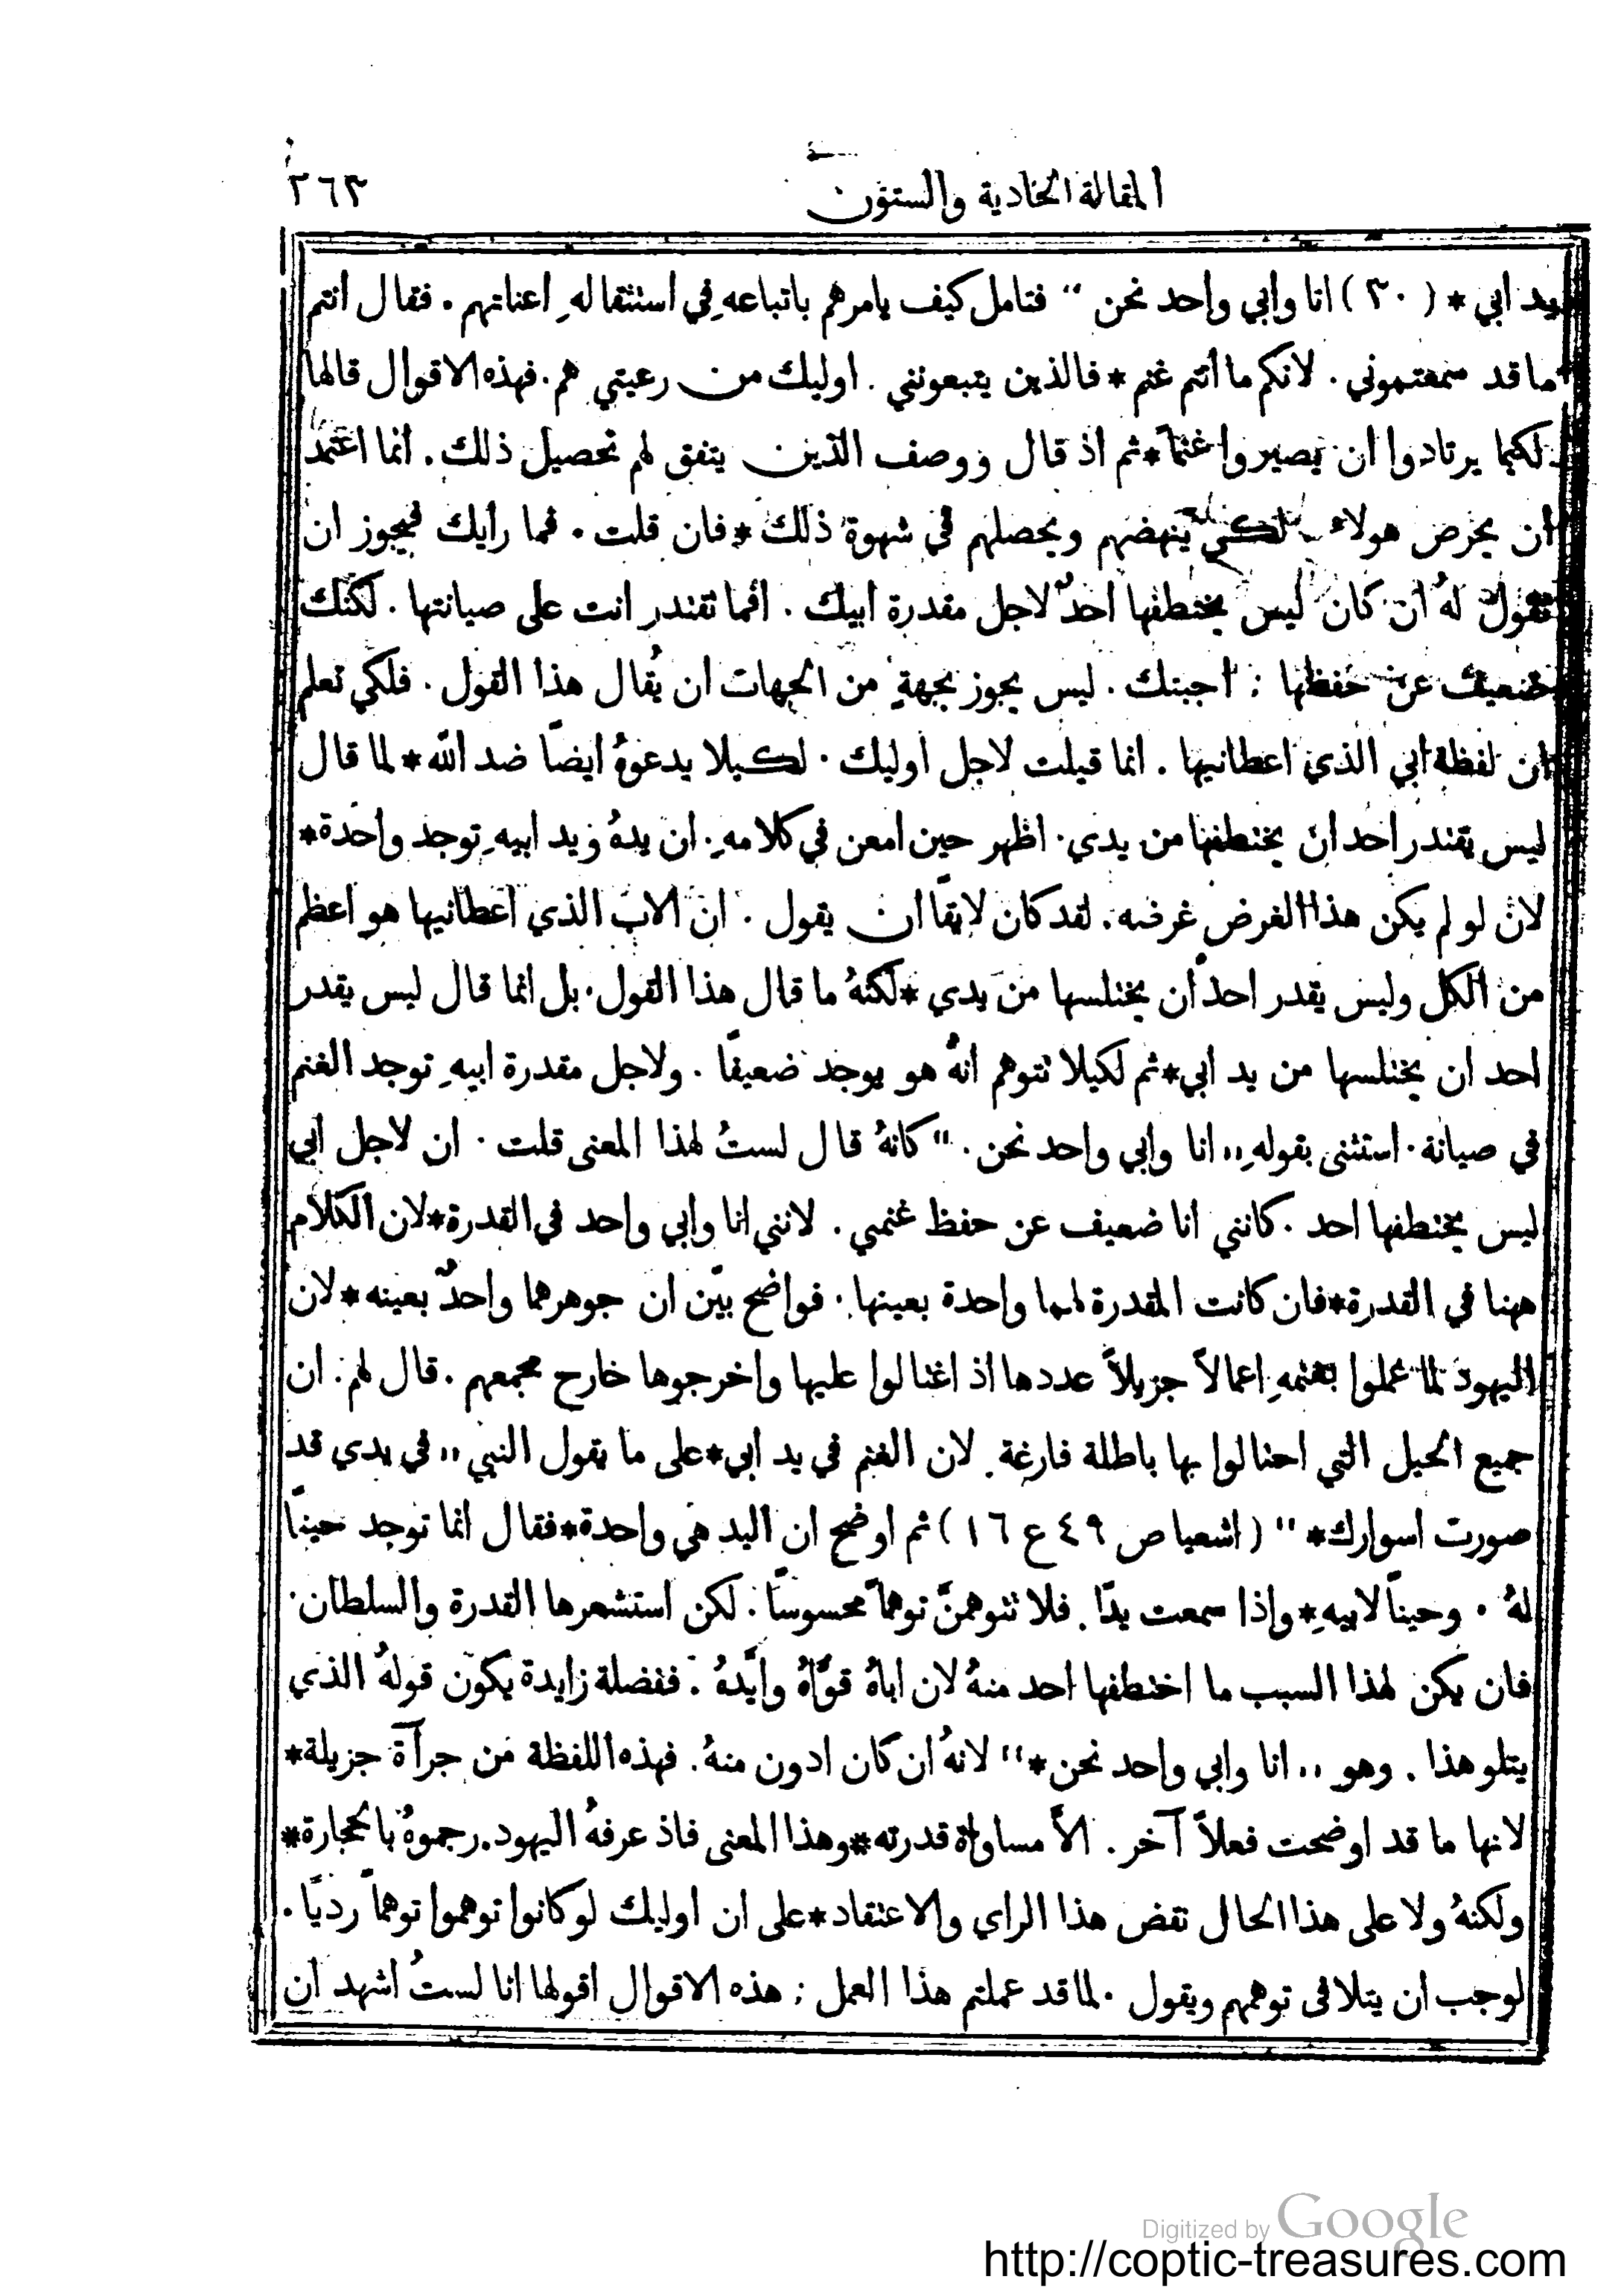 المقالة الحادية والستون
٢٦٣
يد ابي * (٣٠) انا وابي واحد نحن “ فتامل كيف يامرهم باتباعهِ في استثقالهِ اعناتهم . فقال انتم
ما قد سمعتموني . لانكم ما انتم غنم * فالذين يتبعونني . اوليك من رعيتي هم . فهذه الاقوال قالها
لكيما يرتادوا ان يصيروا غنمًا * ثم اذ قال ووصف الذين يتفق لهم تحصيل ذلك . انما اعتمد
ان يحرص هولاء لكي ينهضهم ويحصلهم في شهوة ذلك * فان قلت . فما رأيك فيجوز ان
نقول لهُ ان كان ليس يختطفها احدٌ لاجل مقدرة ابيك . افما تقتدر انت على صيانتها . لكنك
ضعيف عن حفظها : اجبتك . ليس يجوز بجهةٍ من الجهات ان يُقال هذا القول . فلكي تعلم
ان لفظة ابي الذي اعطانيها . انما قيلت لاجل اوليك . لكيلا يدعوهُ ايضًا ضد الله * لما قال
ليس يقتدر احد ان يختطفها من يدي . اظهر حين امعن في كلامهِ . ان يدهُ ويد ابيهِ توجد واحدة *
لان لو لم يكن هذا الغرض غرضه . لقد كان لايقًا ان يقول . ان الاب الذي اعطانيها هو اعظم
من الكل وليس يقدر احد ان يختلسها من يدي * لكنهُ ما قال هذا القول . بل انما قال ليس يقدر
احد ان يختلسها من يد ابي * ثم لكيلا تتوهم انهُ هو يوجد ضعيفًا . ولاجل مقدرة ابيهِ توجد الغنم
في صيانة . استثنى بقولهِ ,, انا وابي واحد نحن . “ كانهُ قال لستُ لهذا المعنى قلت . ان لاجل ابي
ليس يختطفها احد . كانني انا ضعيف عن حفظ غنمي . لانني انا وابي واحد في القدرة * لان الكلام
ههنا في القدرة * فان كانت المقدرة لهما واحدة بعينها . فواضح بيّن ان جوهرهما واحدٌ بعينه * لان
اليهود لما عملوا بغنمهِ اعمالاً جزيلاً عددها اذ اغتالوا عليها واخرجوها خارج مجمعهم . قال لهم . ان
جميع الحيل التي احتالوا بها باطلة فارغة . لان الغنم في يد ابي * على ما يقول النبي ,, في يدي قد
صورت اسوارك * “ ( اشعيا ص ٤٩ ع ١٦ ) ثم اوضح ان اليد هي واحدة * فقال انما توجد حينًا
لهُ . وحينًا لابيهِ * واذا سمعت يدًا . فلا تتوهمنَّ توهمًا محسوسًا : لكن استشعرها القدرة والسلطان .
فان يكن لهذا السبب ما اختطفها احد منهُ لان اباهُ قوَّاهُ وايَّدهُ : ففضلة زايدة يكون قولهُ الذي
يتلو هذا . وهو ,, انا وابي واحد نحن * “ لانهُ ان كان ادون منهُ . فهذه اللفظة من جرآة جزيلة *
لانها ما قد اوضحت فعلاً آخر . الاَّ مساواة قدرته * وهذا المعنى فاذ عرفهُ اليهود . رجموهُ بالحجارة *
ولكنهُ ولا على هذا الحال نقض هذا الراي والاعتقاد * على ان اوليك لو كانوا توهموا توهمًا رديًا .
لوجب ان يتلافى توهمهم ويقول . لما قد عملتم هذا العمل : هذه الاقوال اقولها انا لستُ اشهد ان
Digitized by Google
http://coptic-treasures.com